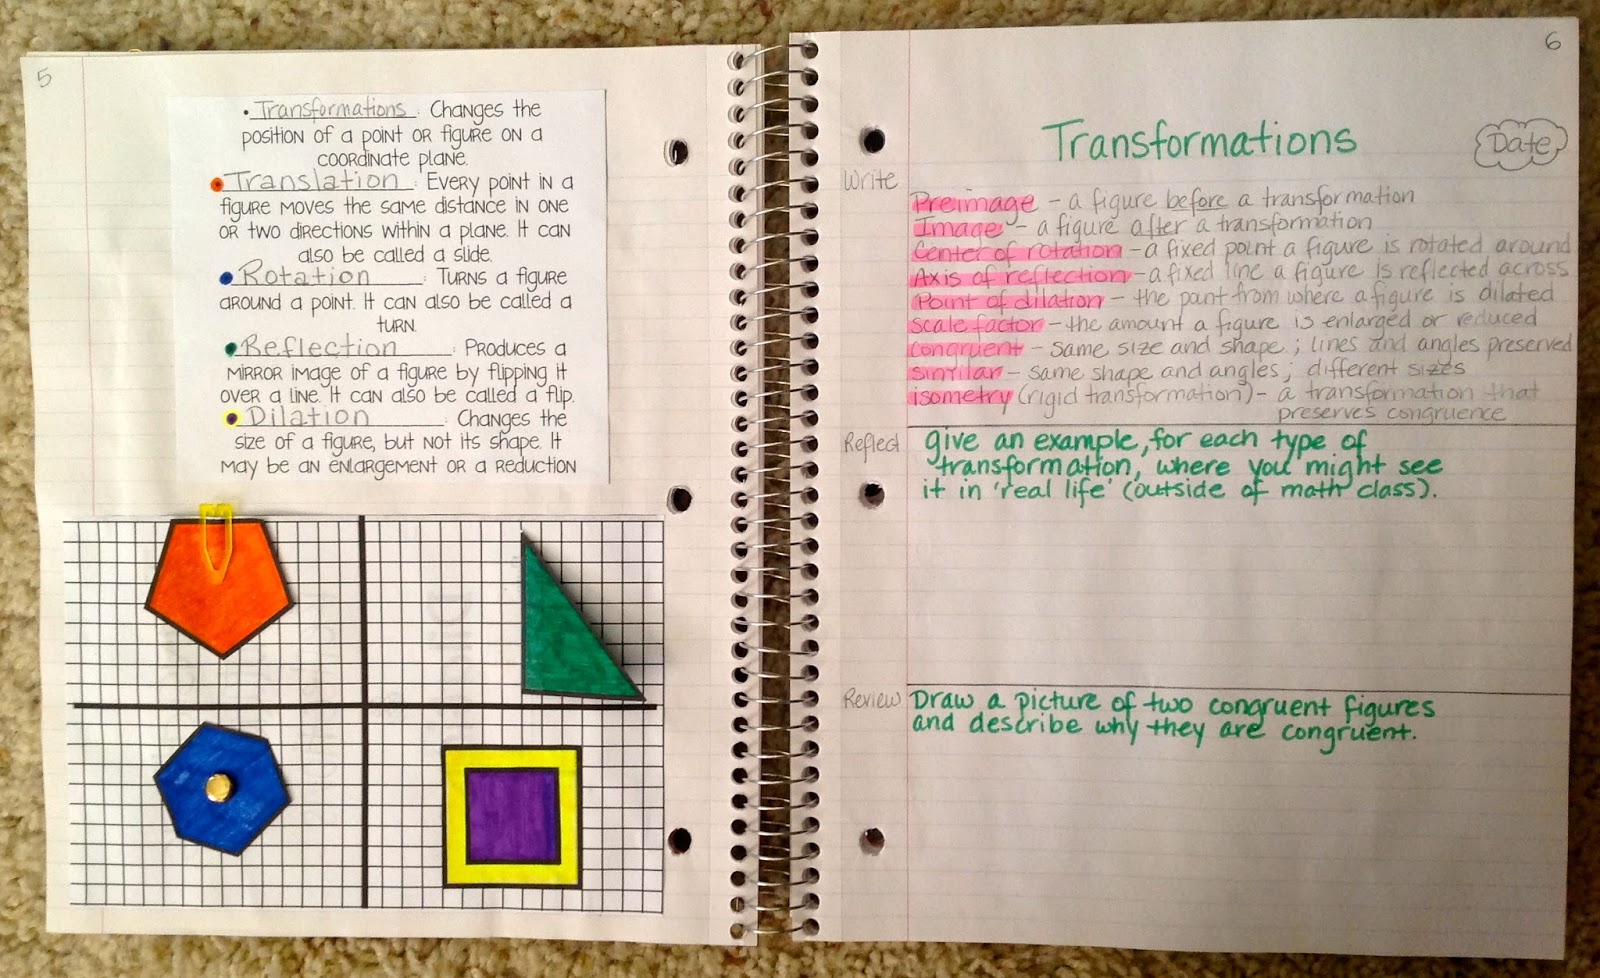 5
• Transformations: Changes the
position of a point or figure on a
coordinate plane.
Translation: Every point in a
figure moves the same distance in one
or two directions within a plane. It can
also be called a slide.
Rotation: Turns a figure
around a point. It can also be called a
turn.
Reflection: Produces a
mirror image of a figure by flipping it
over a line. It can also be called a flip.
Dilation: Changes the
size of a figure, but not its shape. It
may be an enlargement or a reduction
6
Transformations
Date
Write
Preimage - a figure before a transformation
Image - a figure after a transformation
Center of rotation - a fixed point a figure is rotated around
Axis of reflection - a fixed line a figure is reflected across
Point of dilation - the point from where a figure is dilated
scale factor - the amount a figure is enlarged or reduced
congruent - same size and shape; lines and angles preserved
similar - same shape and angles; different sizes
isometry (rigid transformation) - a transformation that
preserves congruence
Reflect
give an example, for each type of
transformation, where you might see
it in 'real life' (outside of math class).
Review
Draw a picture of two congruent figures
and describe why they are congruent.